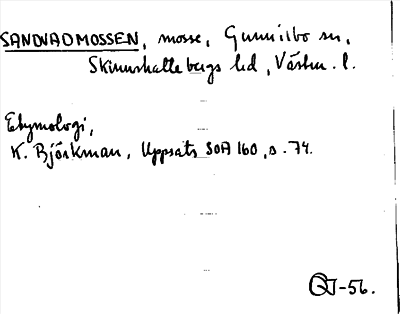 SANDVADMOSSEN, mosse, Gunnilbo sn,
Skinnskattebergs hd, Västm. l.
Etymologi,
K. Björkman, Uppsats SOA 160, s. 74.
-56.